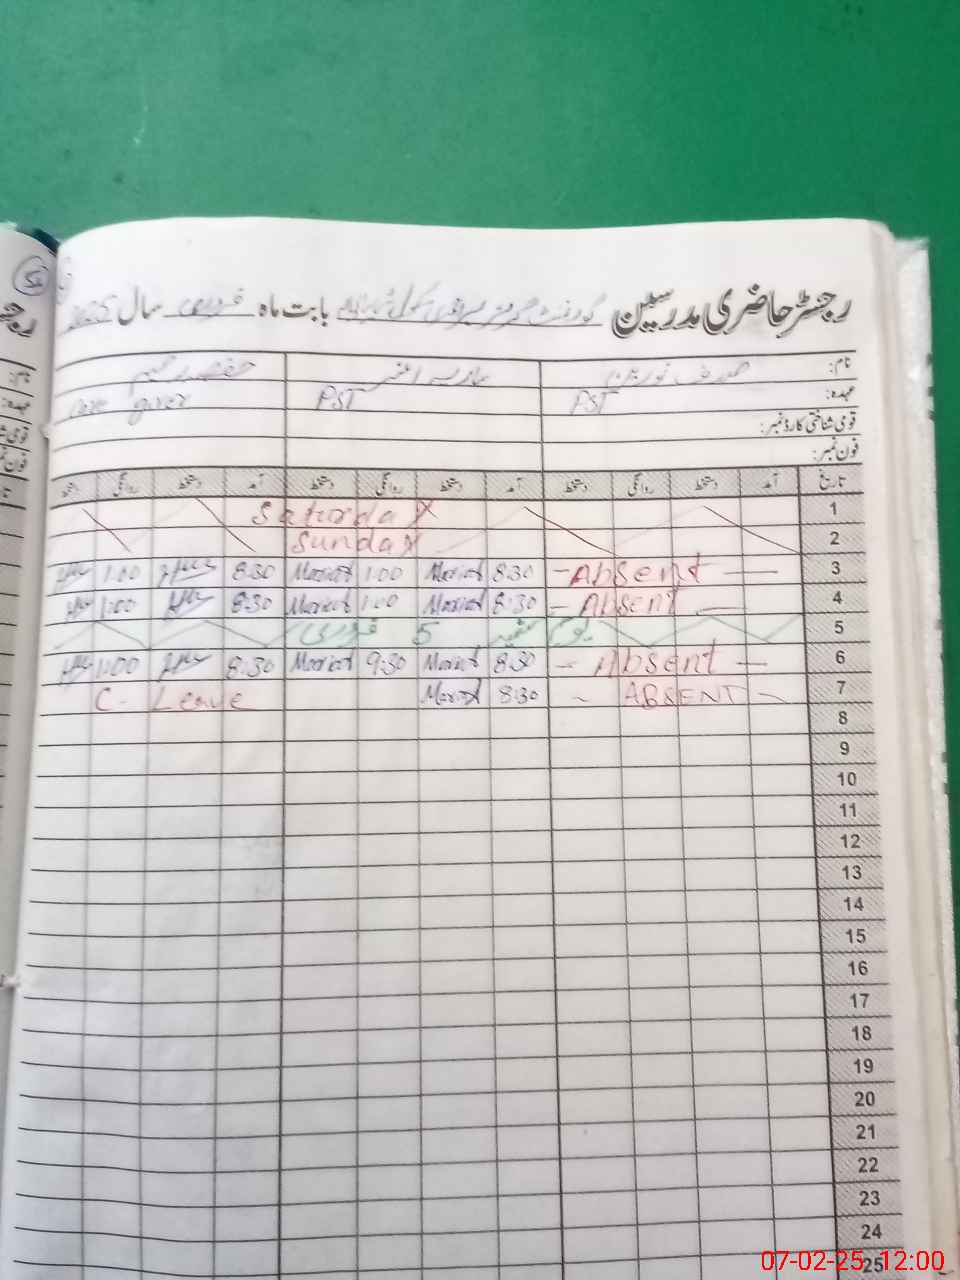 رجسٹر حاضری مدرسین گورنمنٹ گرلز پرائمری سکول بابت ماہ فروری سال 2025
نام: صدف نورین
عہدہ: PST PST Care giver
قومی شناختی کارڈ نمبر:
فون نمبر:
تاریخ آمد دستخط روانگی دستخط آمد دستخط روانگی دستخط آمد دستخط روانگی دستخط
1 Saturday
2 Sunday
3 Absent 8:30 1:00 8:30 1:00
4 Absent 8:30 1:00 8:30 1:00
5 یوم کشمیر 5 فروری
6 Absent 8:30 9:30 8:30 1:00
7 ABSENT 8:30 C- Leave
8
9
10
11
12
13
14
15
16
17
18
19
20
21
22
23
24
25
07-02-25 12:00